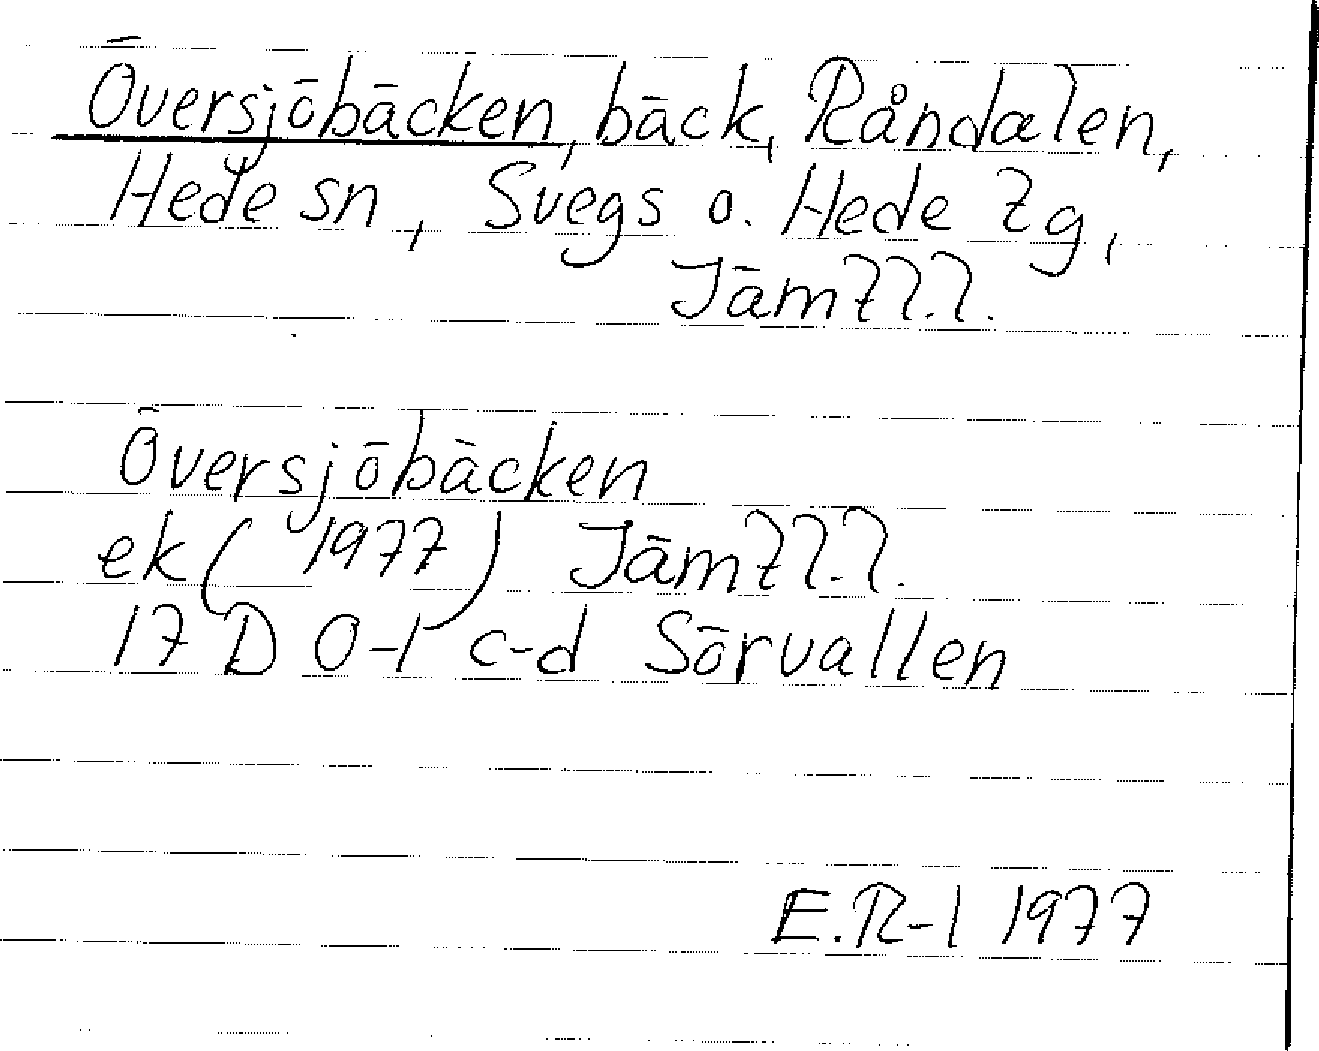 Översjöbäcken, bäck, Råndalen,
Hede sn, Svegs o. Hede tg,
Översjöbäcken
ek (1977)
17 D 0-1 c-d Sörvallen
E.R-l 1977